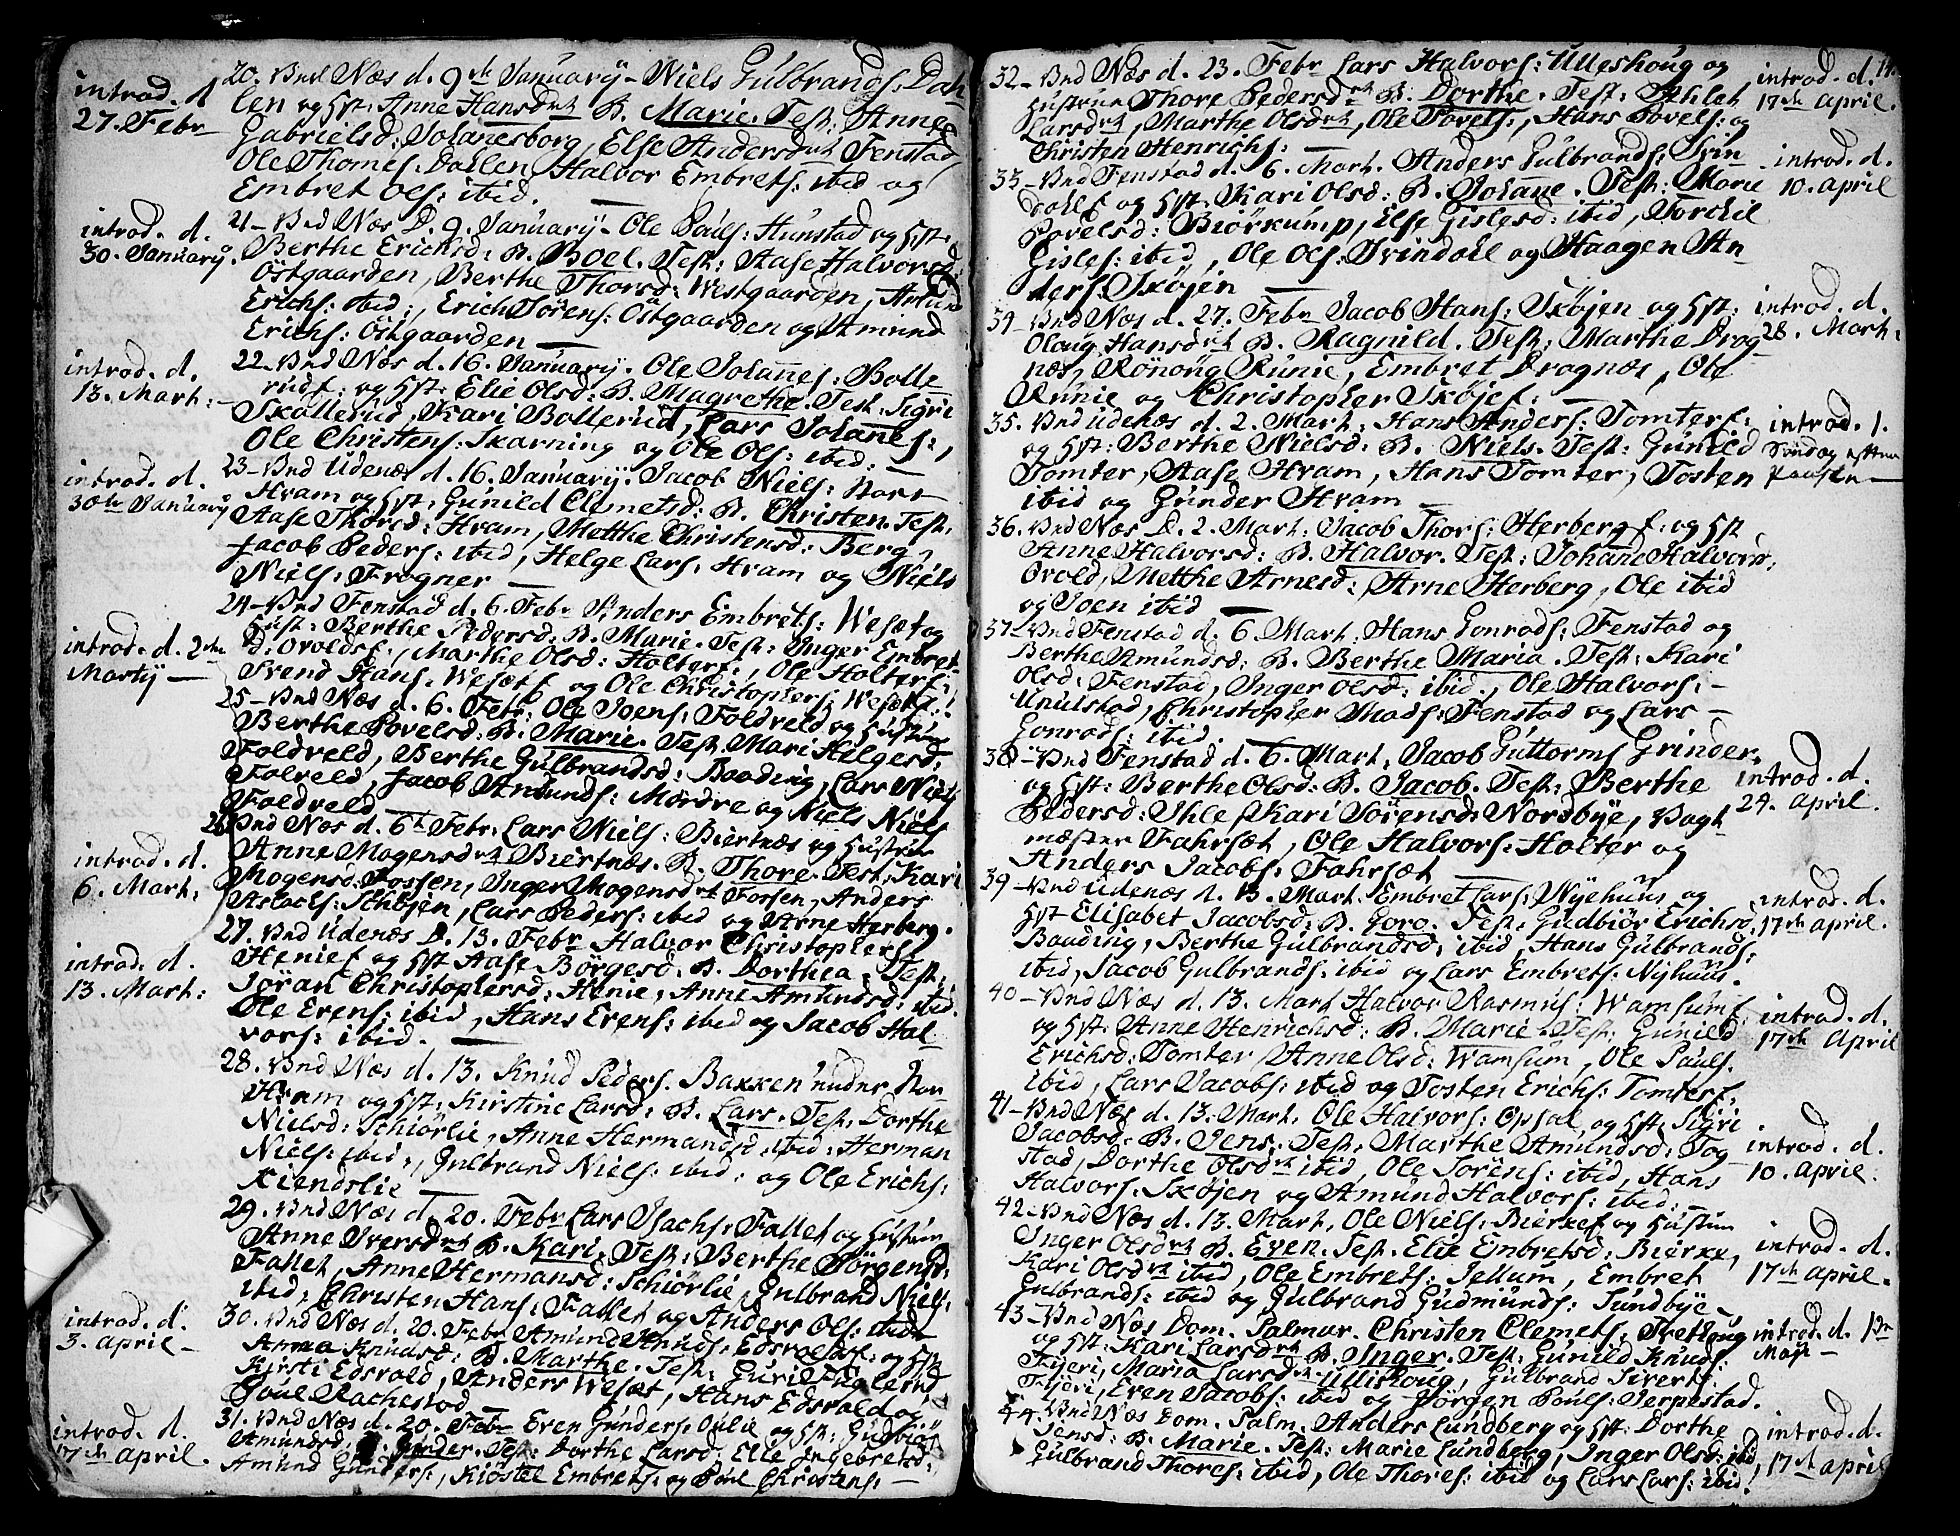 introd. d.
27. Febr
20. Vnd Næs d. 9de January - Niels Gulbrands: Dah
len og Hst: Anne Hansdtr B. Marie. Test: Anne
Gabrielsd: Johanesborg, Else Andersdtr Fenstad,
Ole Thomes. Dallen, Halvor Embrets: ibid og
Embret Ols: ibid. —
introd. d.
30. January.
21 - Vnd Næs D. 9. January - Ole Pouls: Hunstad og Hst:
Berthe Erichsd: B. Boel. Test: Aase Halvorsd:
Östgaarden, Berthe Thorsd: Westgaarden, Amund
Erichs: ibid:, Erich Sörens: Östgaarden og Amund
Erichs: Östgaarden —
introd. d.
13. Mart:
22 - Vnd Næs d. 16. January. Ole Johanes: Bolle
rudf: og Hst: Elie Olsd: B. Magrethe. Test: Sigri
Skollerud, Kari Bollerud, Lars Johanes:,
Ole Christens: Skarning og Ole Ols: ibid: —
introd. d.
30te January
23 - Vnd Udenæs d. 16. January. Jacob Niels: Nor
Hram og Hst: Gunild Clemetsd: B. Christen. Test:
Aase Thorsd: Hram, Metthe Christensd: Berg,
Jacob Peders: ibid, Helge Lars: Hram og Niels
Niels: Frogner —
introd. d. 2den
Martij —
24 - Vnd Fenstad d. 6. Febr Anders Embrets: Wesæt og
Hust: Berthe Pedersd: B. Marie. Test: Inger Embret
D: Ovoldsf:, Marthe Olsd: Holterf:, Ole Holterf:
Svend Hans: Wesætf og Ole Christophers: Wesætf:
25 - Vnd Næs d. 6. Febr: Ole Joens: Foldveld og Hustru
Berthe Povelsd: B. Marie. Test: Mari Helgesd:
Foldveld, Berthe Gulbrandsd: Baading, Lars Niels
Folveld, Jacob Amunds: Mordre og Niels Niels
Foldveld —
introd. d.
6. Mart:
26 Vnd Næs d. 6t Febr: Lars Niels: Biertnæs og Hustru
Anne Mogensdtr Biertnæs. B. Thore. Test: Kari
Mogensd: Fossen, Inger Mogensdtr Fossen, Anders
Aslachs: Schojen, Lars Peders: ibid og Arne Herberg.
introd. d.
13. Mart:
27. Vnd Udenæs D. 13. Febr Halvor Christophers:
Henief og Hst Aase Börgesd: B. Dorthea. Test:
Jöran Christophersd: Henie, Anne Amundsd: ibid.
Ole Erens: ibid, Hans Erens: ibid og Jacob Hal-
vors: ibid. —
28. Vnd Næs d. 13. Knud Peders. Baxxen under Nor
Hram og Hst: Kirstine Larsd: B. Lars. Test: Dorthe
Nielsd: Schiörlie, Anne Hermansd: ibid: Herman
Niels: ibid:, Gulbrand Niels: ibid: og Ole Erichs:
Kiendslie —
29. Vnd Næs d. 20. Febr Lars Isachs: Fallet og Hustru
Anne Iversdtr B. Kari. Test: Berthe Börgensd:
Fallet, Anne Hermansd: Schiörlie, Gulbrand Niels:
ibid, Christen Hans: Fallet og Anders Ols: ibid
introd. d:
3. April —
30. Vnd Næs d. 20. Febr Amund Knuds: Edsvolds: og Hst
Anna Knudsd: B. Marthe. Test: Guri Fuglerud
Kirsti Edsvold, Anders Wesæt, Hans Edsvold og
Poul Rachestad
introd. d.
17de April.
31. Vnd Næs d. 20. Febr Even Gunders: Oulie og Hst: Gudbiör
Amundsd. B. Gunder. Test: Dorthe Larsd. Elle Ingebretsd:
Amund Gunders:, Kiöstel Embrets: og Poul Christens: —
14.
32 - Vnd Næs d. 23. Febr Lars Halvors: Ulleshoug og
Hustrue Thore Pedersdtr B: Dorthe. Test: Sehlet
Larsdtr, Marthe Olsdtr, Ole Povels:, Hans Povels: og
Christen Henrichs: —
introd. d.
17de April.
33 - Vnd Fenstad d. 6. Mart. Anders Gulbrands: Svin
dahlf og Hst: Kari Olsd: B. Johanne. Test: Marie
Povelsd: Biörkump, Else Gislesd: ibid, Torchil
Gisles: ibid, Ole Ols: Svindahl og Haagen An
ders: Skøjen —
introd. d.
10. April
34 - Vnd Næs d. 27. Febr Jacob Hans: Skøjen og Hst:
Oloug Hansdtr B. Ragnild. Test: Marthe Drog
næs, Rönoug Runie, Embret Drognæs, Ole
Runie og Christopher Skøjef: —
introd. d.
28. Mart:
35. Vnd Udenæs d. 2. Mart: Hans Anders: Tomterf:
og Hst: Berthe Nielsd: B. Niels. Test: Gunild
Tomter, Aase Hram, Hans Tomter, Tosten
ibid og Gunder Hram —
introd. 1.
Søndag efter
Paasken —
36. Vnd Næs D. 2. Mart: Jacob Thors: Herberg f: og Hst
Anne Halvorsd: B. Halvor. Test: Johane Halvorsd,
Ovold, Metthe Arnesd: Arne Herberg, Ole ibid
og Joen ibid —
37 - Vnd Fenstad d. 6. Mart: Hans Gonrads: Fenstad og
Berthe Amundsd: B. Berthe Maria. Test: Kari
Olsd: Fenstad, Inger Olsd: ibid., Ole Halvors: -
Unulstad, Christopher Mads: Fenstad og Lars —
Gonrads: ibid.
38 - Vnd Fenstad d. 6. Mart: Jacob Guttorms Grinder,
og Hst: Berthe Olsd: B. Jacob. Test: Berthe
Pedersd: Ihle, Kari Sörensd: Nordbye, Vagt
mæster Fahrsæt, Ole Halvors: Holter og
Anders Jacobs: Fahrsæt —
introd. d.
24. April.
39 - Vnd Udenæs d. 13. Mart: Embret Lars: Nyehuus og
Hst Elisabet Jacobsd: B. Goro. Test: Gudbiör Erichsd,
Baading, Berthe Gulbrandsd: ibid, Hans Gulbrands:
ibid, Jacob Gulbrands: ibid og Lars Embrets: Nyhuus.
introd. d.
17de April.
40 - Vnd Næs d. 13. Mart Halvor Rasmus: Wamsumf:
og Hst: Anne Henrichsd: B. Marie. Test: Gunild
Erichsd: Tomter, Anne Olsd: Wamsum, Ole Pauls.
ibid, Lars Jacobs: ibid og Tosten Erichs: Tomterf.
introd. d.
17de April
41 - Vnd Næs d. 13. Mart. Ole Halvors: Opsal, og Hst: Sigri
Jacobsd: B. Jens. Test: Marthe Amundsd: Tog
stad, Dorthe Olsdtr ibid, Ole Sorens: ibid, Hans
Halvors. Skøjen og Amund Halvors: ibid: —
introd. d.
10. April.
42 - Vnd Næs d. 13. Mart, Ole Niels: Bierkef og Hustru
Inger Olsdtr B. Even. Test. Elie Embretsd: Bierke,
Kari Olsdtr ibid, Ole Embrets: Jellum, Embret
Gulbrands: ibid og Gulbrand Gudmunds: Sundbye —
introd. d.
17de April.
43 - Vnd Næs Dom. Palmar. Christen Clemets, Tvethoug
og Hst: Kari Larsdtr B. Inger. Test: Gunild Knuds:
Skjeri, Maria Larsdtr Ulleshoug, Gulbrand Siverts:
Skjeri, Even Jacobs: ibid og Jörgen Pouls: Serpestad.
introd. d. 1te
Maji —
44. Vnd Næs Dom. Palm. Anders Lundberg og Hst: Dorthe
Jensd: B. Marie. Test: Marie Lundberg, Inger Olsd: ibid,
Gulbrand Thores: ibid, Ole Thores: ibid og Lars Lars: ibid.
introd. d.
17de April